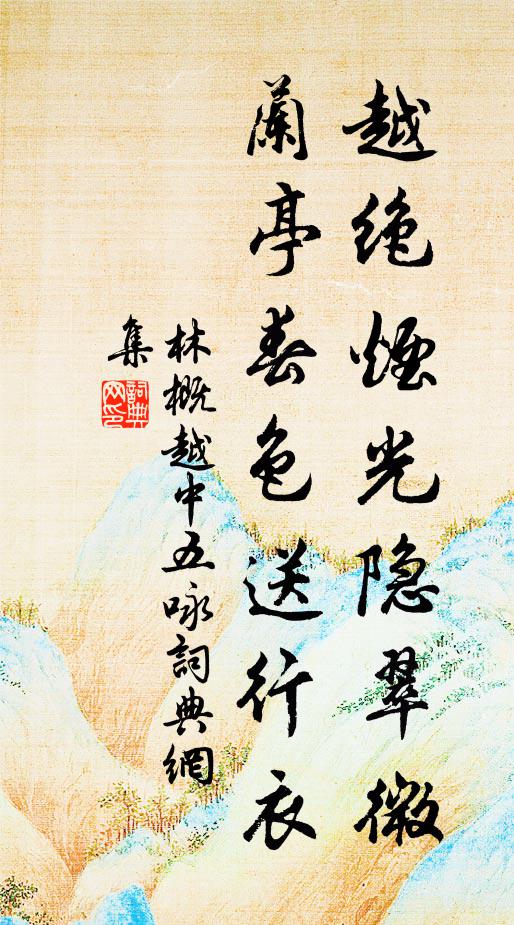 越绝煙光隐翠微
蘭亭春色送行衣
林概越中五咏詞典網
集
詞典網印